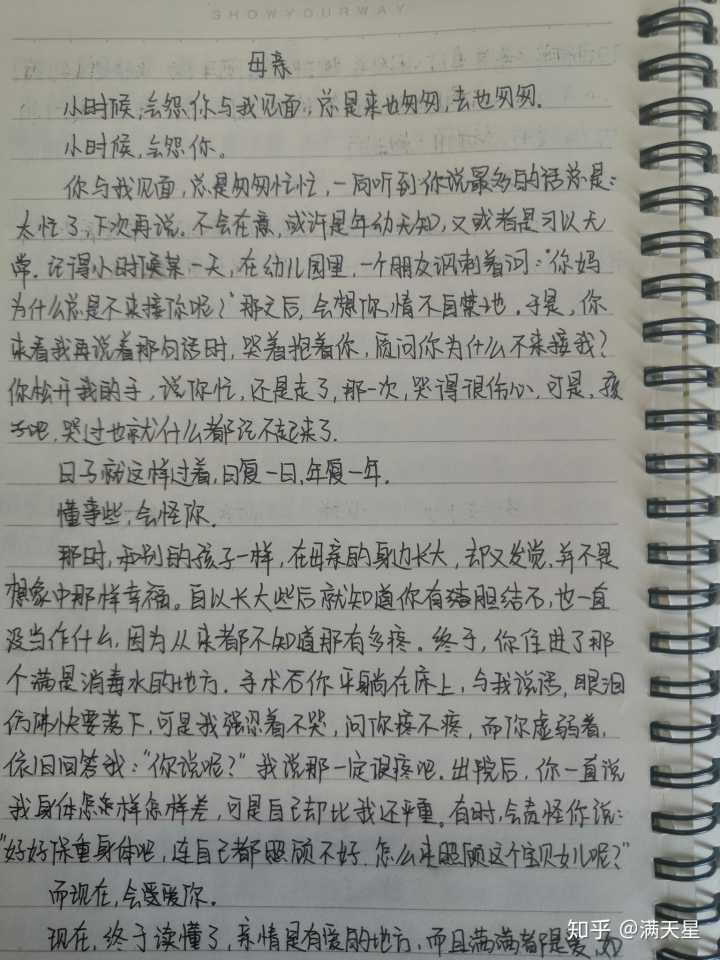 YAWRUOYWOHS
母亲
小时候,会怨你与我见面,总是来也匆匆,去也匆匆.
小时候,会怨你。
你与我见面,总是匆匆忙忙,一同听到你说最多的话总是:
太忙了,下次再说。不会在意,或许是年幼无知,又或者是习以无
常.记得小时候某一天,在幼儿园里,一个朋友讽刺着问:"你妈
为什么总是不来接你呢?"那之后,会想你,情不自禁地.于是,你
来看我再说着那句话时,哭着抱着你,质问你为什么不来接我?
你松开我的手,说你忙,还是走了,那一次,哭得很伤心.可是,孩
子吧,哭过也就什么都记不起来了.
日子就这样过着,日复一日,年复一年.
懂事些,会怪你.
那时,和别的孩子一样,在母亲的身边长大,却又发觉,并不是
想象中那样幸福。自从长大些后就知道你有胆结石,也一直
没当作什么,因为从来都不知道那有多疼。终于,你住进了那
个满是消毒水的地方.手术后你平躺在床上,与我说话,眼泪
仿佛快要落下,可是我强忍着不哭,问你疼不疼,而你虚弱着,
依旧回答我:"你说呢?"我说那一定很疼吧.出院后,你一直说
我身体怎样怎样差,可是自己却比我还严重。有时,会责怪你说:
"好好保重身体吧,连自己都照顾不好.怎么来照顾这个宝贝女儿呢?"
而现在,会爱你.
现在,终于读懂了,亲情是有爱的地方,而且满满都是爱,如
知乎 @满天星